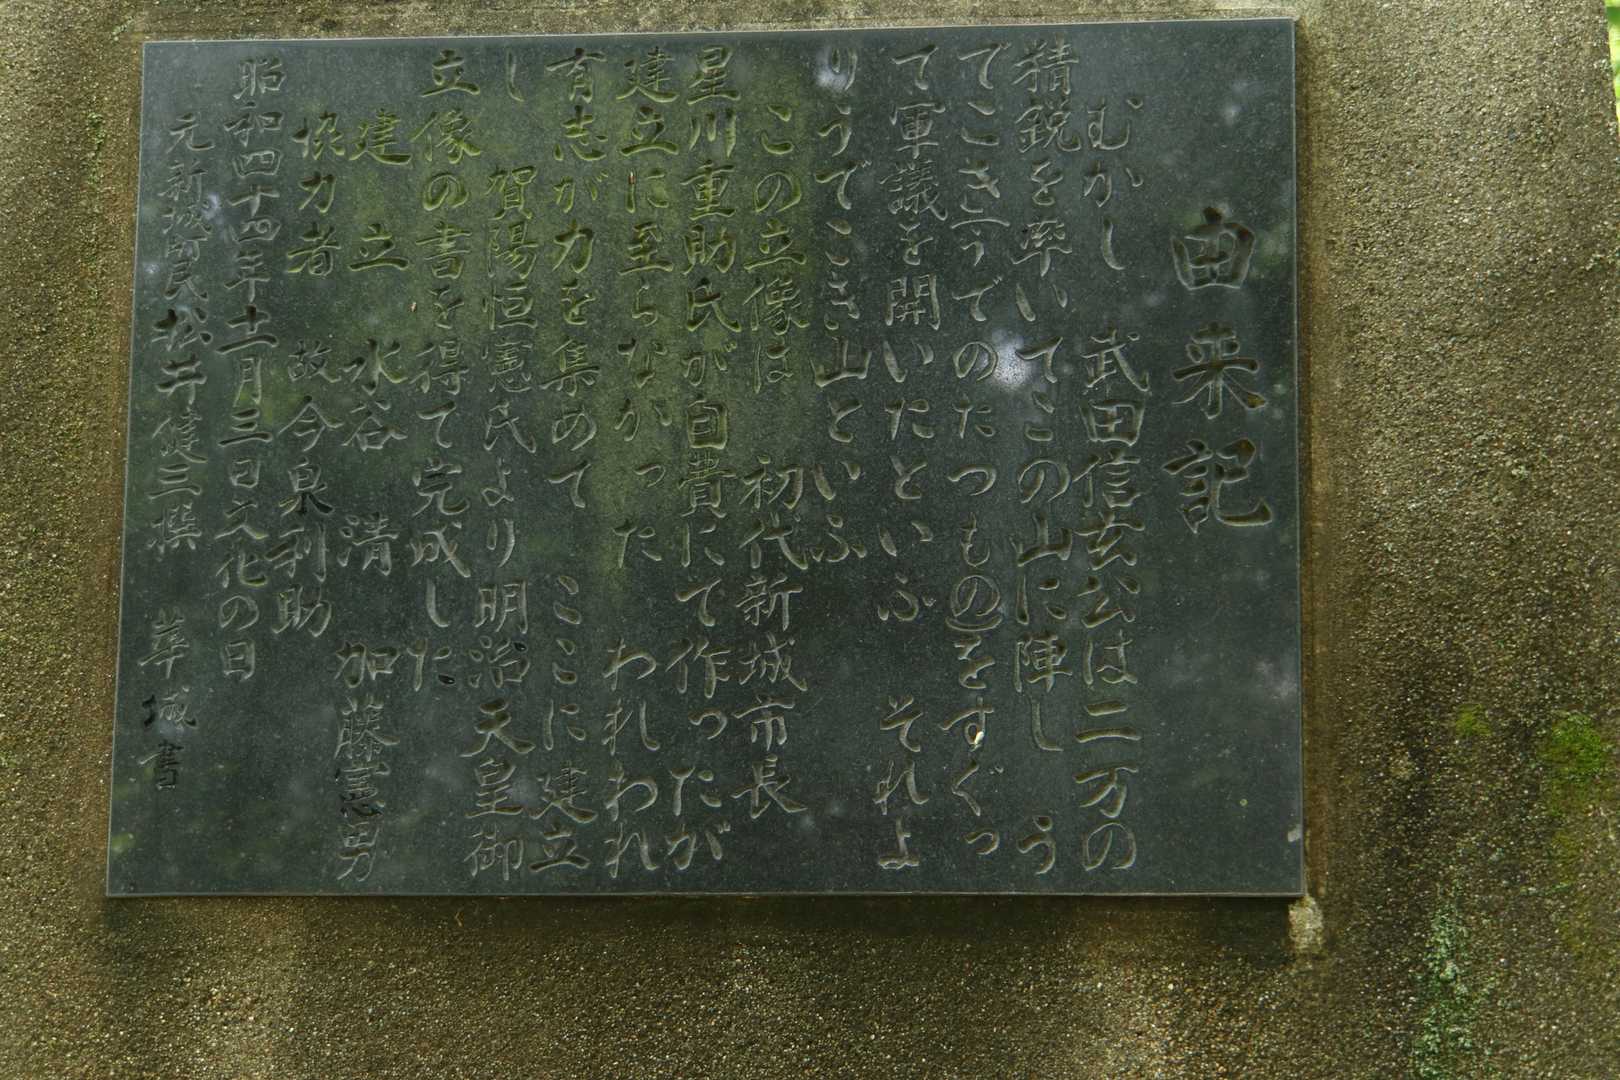 由来記
むかし 武田信玄公は二万の
精鋭を率いてこの山に陣し う
でこき(うでのたつもの)をすぐっ
て軍議を開いたといふ それよ
りうでこき山といふ
この立像は 初代新城市長
星川重助氏が自費にて作ったが
建立に至らなかった われわれ
有志が力を集めて ここに建立
し 賀陽恒憲氏より明治天皇御
立像の書を得て完成した
建立 水谷 清 加藤憲男
協力者 故今泉利助
昭和四十四年十一月三日文化の日
元新城町民 松井健三撰 華城書